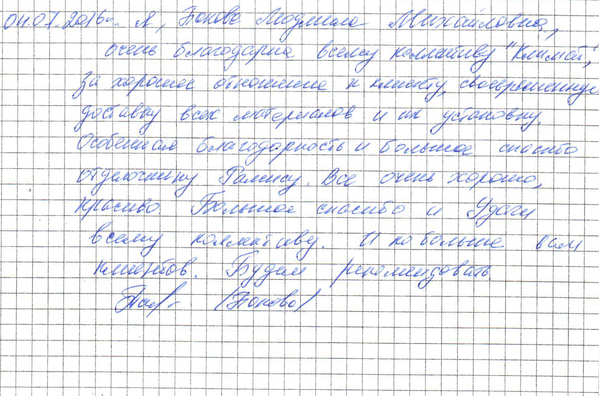 04.07.2016г. Я, Попова Людмила Михайловна,
очень благодарна всему коллективу "Климат",
за хорошее отношение к клиенту, своевременную
доставку всех материалов и их установку.
Особенная благодарность и большое спасибо
отделочнику Рамису. Все очень хорошо,
красиво. Большое спасибо и Удачи
всему коллективу. И побольше вам
клиентов. Будем рекомендовать
(Попова)